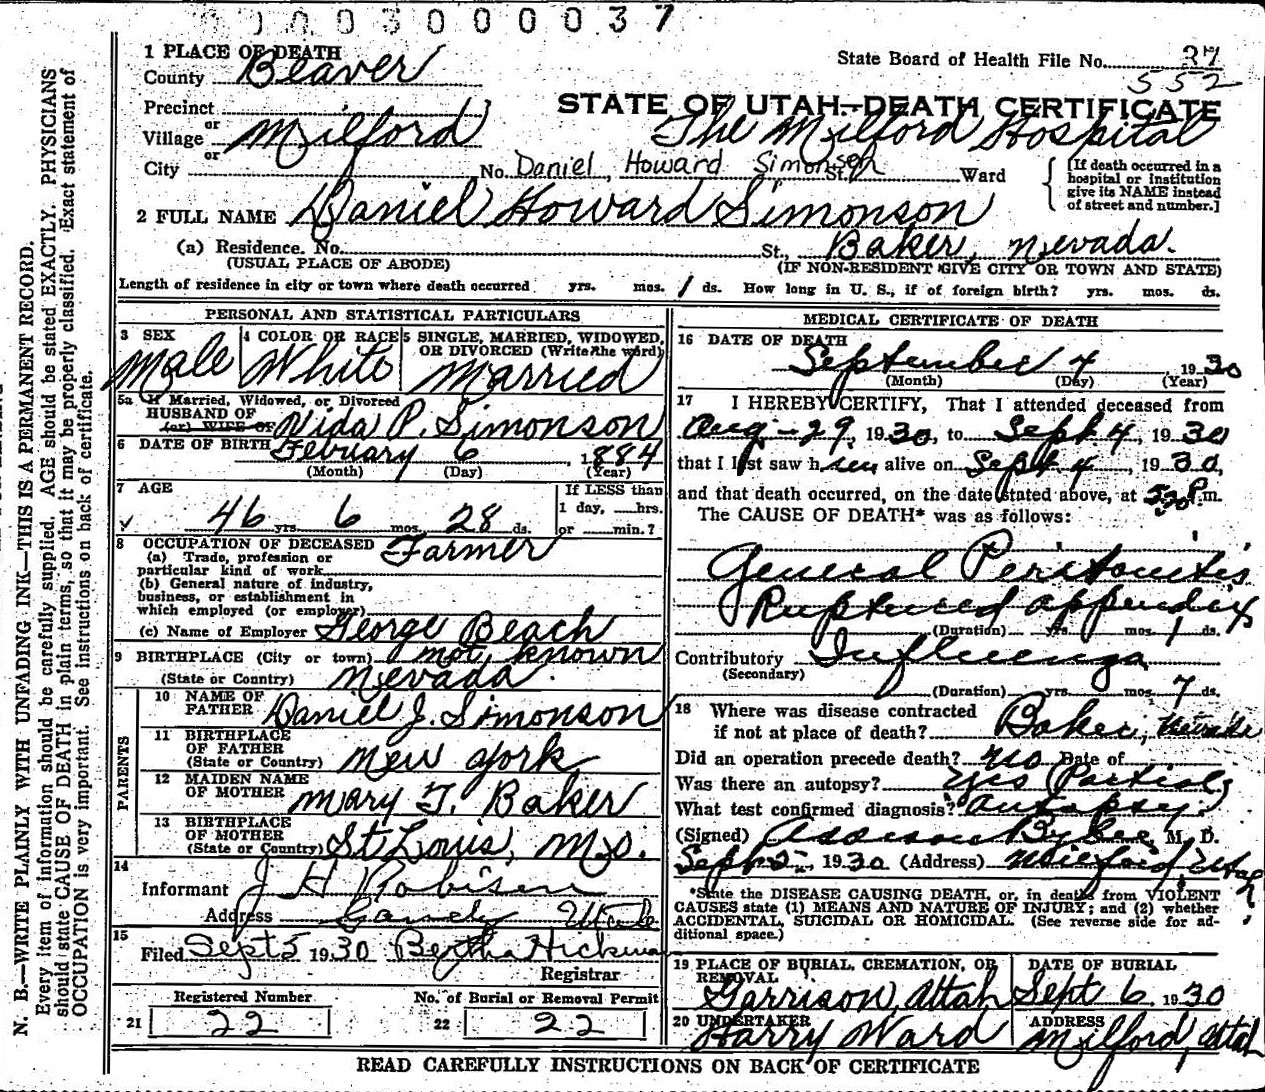 0003000037
1 PLACE OF DEATH
County Beaver
State Board of Health File No. 37
552
Precinct
or
Village Milford
or
City
STATE OF UTAH—DEATH CERTIFICATE
The Milford Hospital
No. Daniel Howard Simonson St. Ward
[If death occurred in a
hospital or institution
give its NAME instead
of street and number.]
2 FULL NAME Daniel Howard Simonson
(a) Residence. No. St., Baker, Nevada.
(USUAL PLACE OF ABODE) (IF NON-RESIDENT GIVE CITY OR TOWN AND STATE)
Length of residence in city or town where death occurred yrs. mos. 1 ds. How long in U. S., if of foreign birth? yrs. mos. ds.
PERSONAL AND STATISTICAL PARTICULARS
3 SEX
Male
4 COLOR OR RACE
White
5 SINGLE, MARRIED, WIDOWED,
OR DIVORCED (Write the word)
Married
5a If Married, Widowed, or Divorced
HUSBAND OF
(or) WIFE OF Vida P. Simonson
6 DATE OF BIRTH Februrary 6, 1884
(Month) (Day) (Year)
7 AGE
46 yrs. 6 mos. 28 ds.
If LESS than
1 day, hrs.
or min.?
8 OCCUPATION OF DECEASED Farmer
(a) Trade, profession or
particular kind of work
(b) General nature of industry,
business, or establishment in
which employed (or employer)
(c) Name of Employer George Beach
9 BIRTHPLACE (City or town) not known
(State or Country) Nevada.
PARENTS
10 NAME OF
FATHER Daniel J. Simonson
11 BIRTHPLACE
OF FATHER
(State or Country) New York
12 MAIDEN NAME
OF MOTHER Mary J. Baker
13 BIRTHPLACE
OF MOTHER
(State or Country) St Louis, Mo.
14
Informant J H Robison
Address Utah
15
Filed Sept 5 1930 Bertha Hickman
Registrar
Registered Number
21 22
No. of Burial or Removal Permit
22 22
MEDICAL CERTIFICATE OF DEATH
16 DATE OF DEATH
September 4 1930
(Month) (Day) (Year)
17 I HEREBY CERTIFY, That I attended deceased from
Aug - 29, 1930, to Sept 4, 1930
that I last saw h alive on Sept 4, 1930,
and that death occurred, on the date stated above, at 5:30 P.m.
The CAUSE OF DEATH* was as follows:
General Peritonitis
Ruptured appendix
(Duration) yrs. mos. 1 ds.
Contributory Influenza
(Secondary)
(Duration) yrs. mos. 7 ds.
18 Where was disease contracted
if not at place of death? Baker, Nevada
Did an operation precede death? no Date of
Was there an autopsy? Yes Partial
What test confirmed diagnosis? autopsy.
(Signed) M. D.
Sept 5 1930 (Address) Milford, Utah
*State the DISEASE CAUSING DEATH, or, in deaths from VIOLENT
CAUSES state (1) MEANS AND NATURE OF INJURY; and (2) whether
ACCIDENTAL, SUICIDAL OR HOMICIDAL. (See reverse side for ad-
ditional space.)
19 PLACE OF BURIAL, CREMATION, OR
REMOVAL
Garrison, Utah
DATE OF BURIAL
Sept 6, 1930
20 UNDERTAKER
Harry Ward
ADDRESS
Milford, Utah
READ CAREFULLY INSTRUCTIONS ON BACK OF CERTIFICATE
N. B.—WRITE PLAINLY WITH UNFADING INK—THIS IS A PERMANENT RECORD.
Every item of information should be carefully supplied. AGE should be stated EXACTLY. PHYSICIANS
should state CAUSE OF DEATH in plain terms, so that it may be properly classified. Exact statement of
OCCUPATION is very important. See instructions on back of certificate.